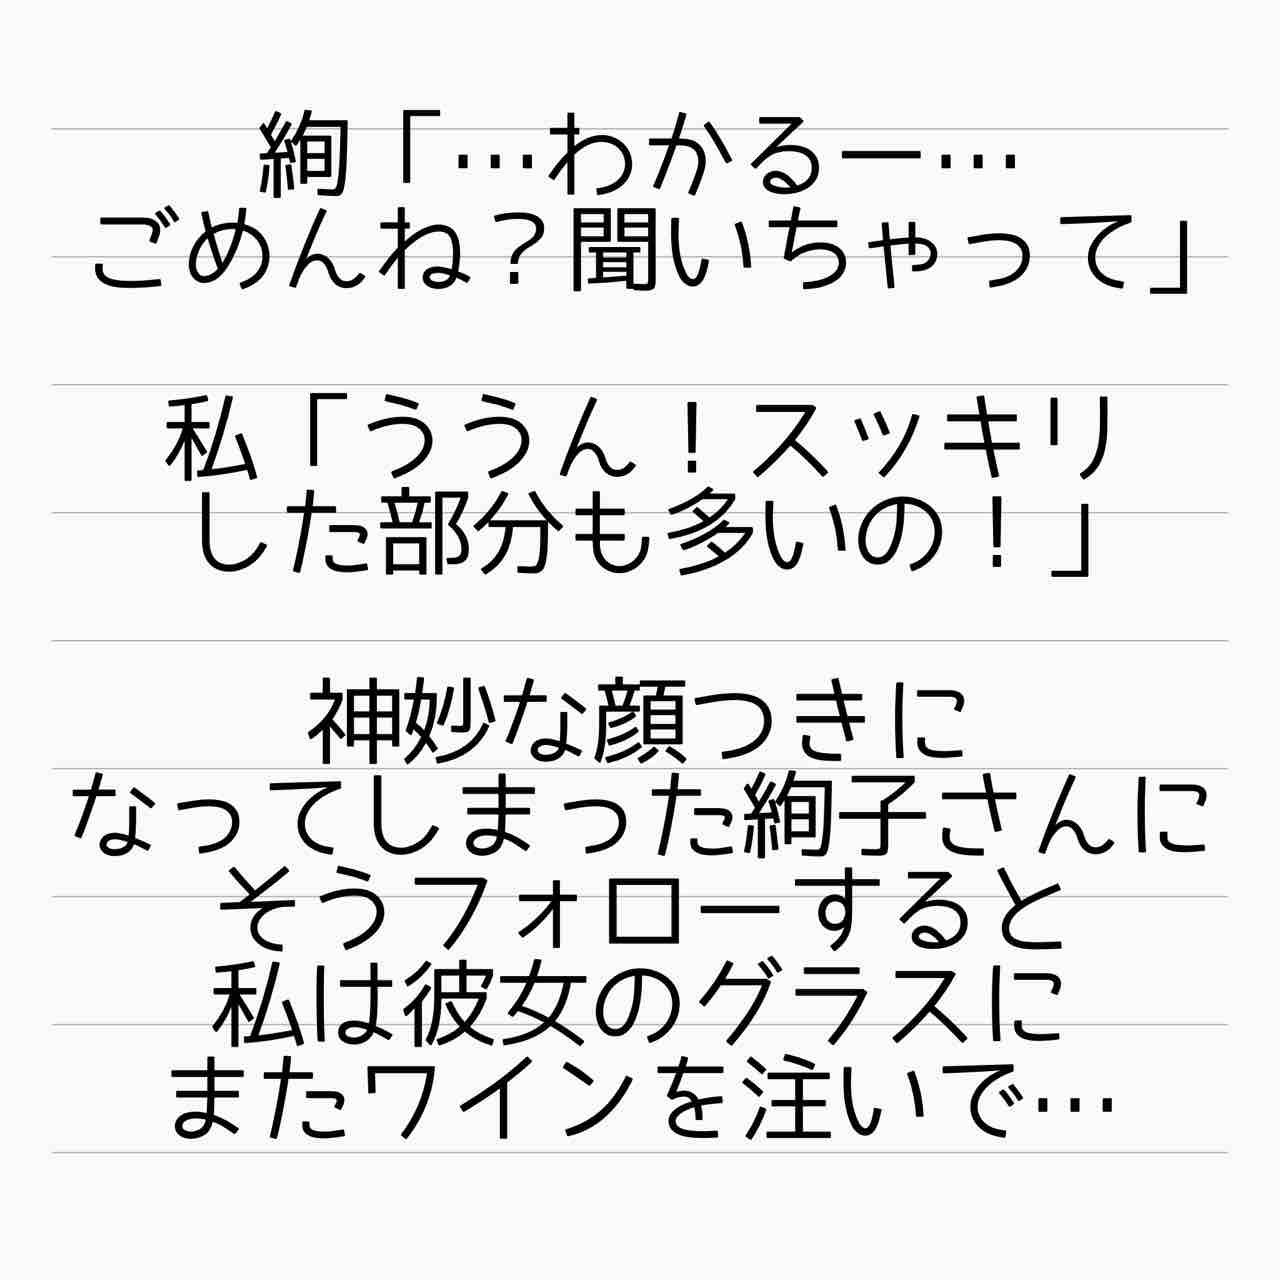 絢「…わかるー…
ごめんね？聞いちゃって」
私「ううん！スッキリ
した部分も多いの！」
神妙な顔つきに
なってしまった絢子さんに
そうフォローすると
私は彼女のグラスに
またワインを注いで…